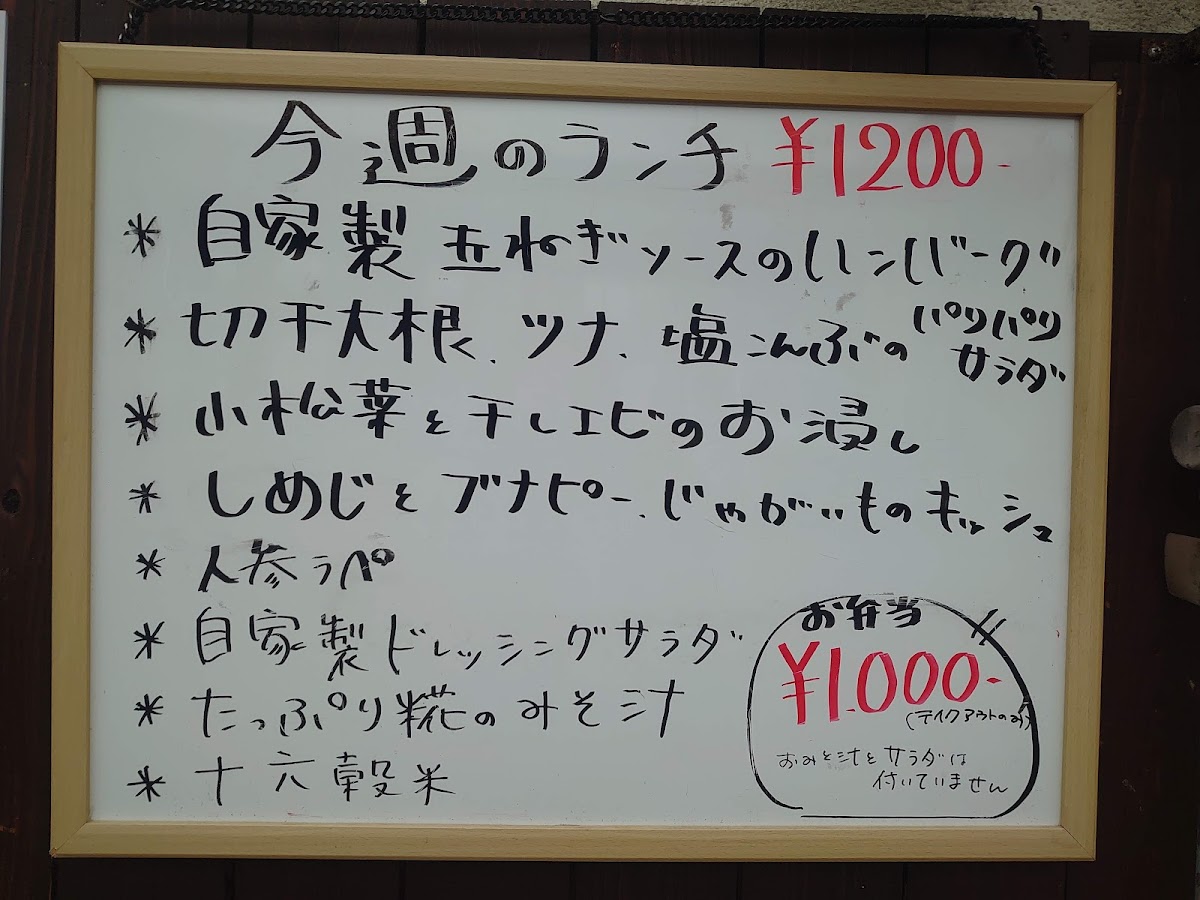 今週のランチ ¥1200-
* 自家製 玉ねぎソースのハンバーグ
* 切干大根、ツナ、塩こんぶのパリパリサラダ
* 小松菜と干しエビのお浸し
* しめじとブナピー、じゃがいものキッシュ
* 人参ラペ
* 自家製ドレッシングサラダ
* たっぷり糀のみそ汁
* 十六穀米
お弁当
¥1.000-
(テイクアウトのみ)
おみそ汁とサラダは
付いていません